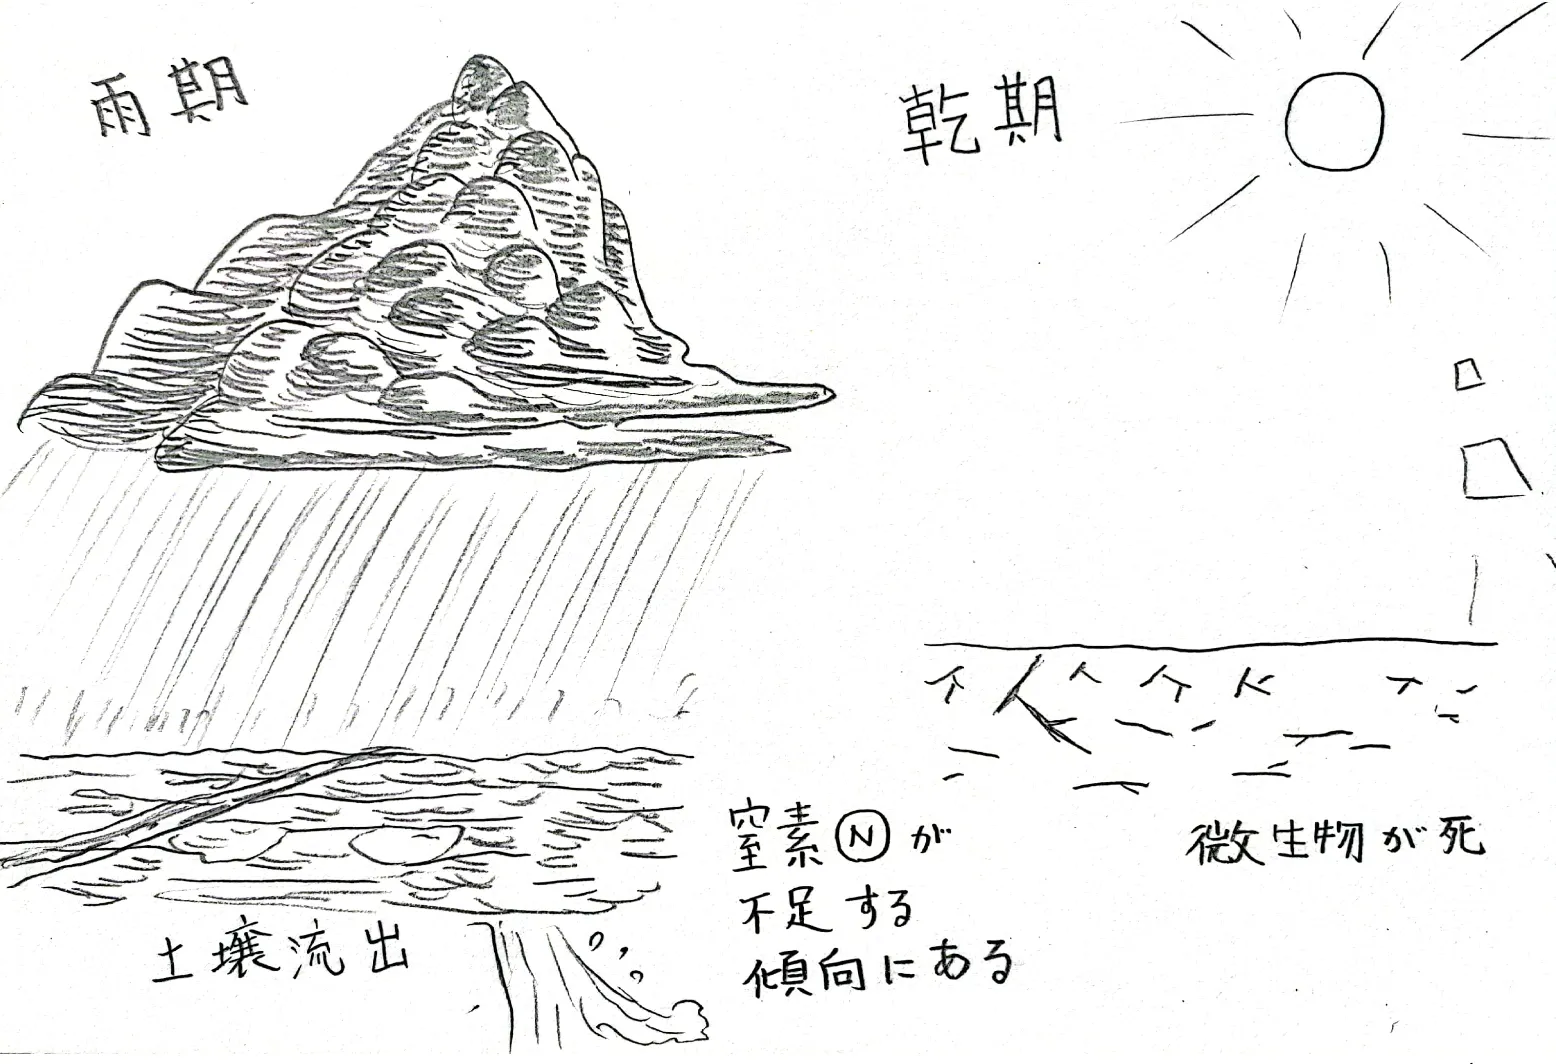 雨期
乾期
土壌流出
窒素Ⓝが
不足する
傾向にある
微生物が死